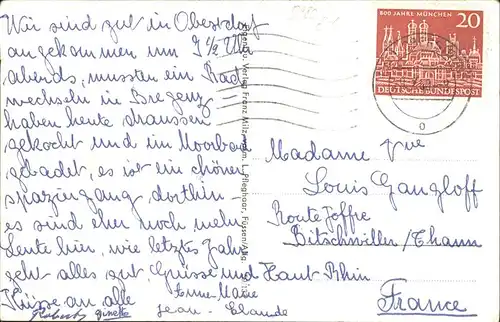 Wir sind gut in Oberstdorf
angekommen um 9½ Uhr
abends, mussten ein Rad
wechseln in Bregenz –
haben heute draussen
gekocht und im Moorbad
gebadet, es ist ein schöner
spaziergang dorthin –
es sind eher noch mehr
Leute hier, wie letztes Jahr
geht alles gut, Grüsse und
Küsse an alle
Anne-Marie
Robert Ginette Jean-Claude
Verlag Franz Milz, L. Pfleghaar, Füssen/Allg.
800 JAHRE MÜNCHEN 20
DEUTSCHE BUNDESPOST
Madame Vve
Louis Gangloff
Route Joffre
Bitschwiller/Thann
Haut Rhin
France